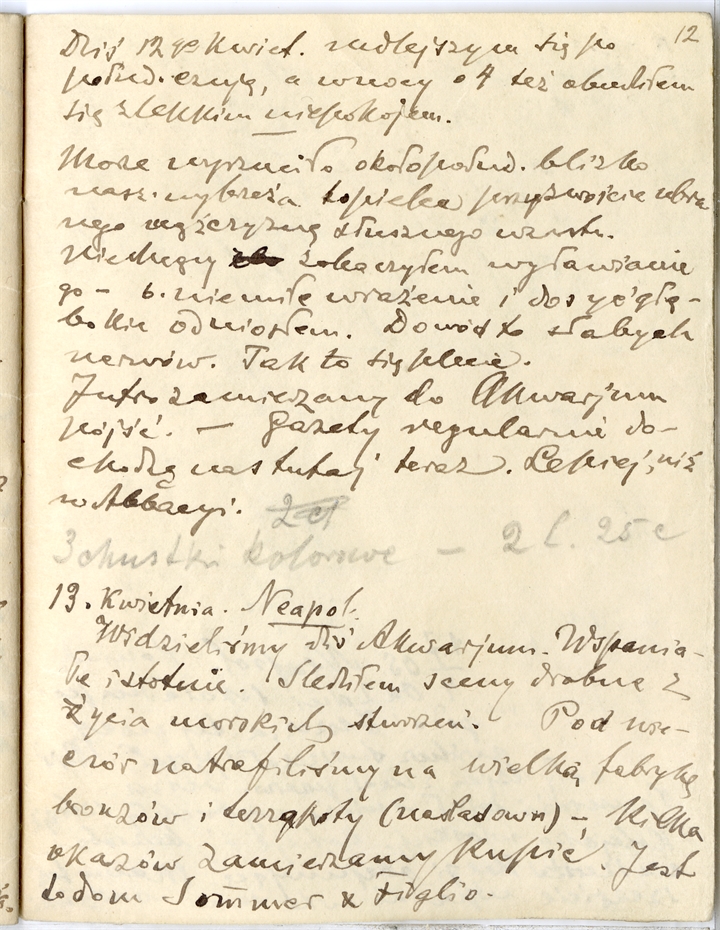 12
Dziś 12go Kwiet. mdlejszym się po
południu czuję, a w nocy o 4 też obudziłem
się z lekkim niepokojem.
Morze wyrzuciło okołopołud. blizko
nasz. wybrzeża topielca przyzwoicie ubra
nego mężczyznę słusznego wzrostu.
Niechcący zobaczyłem wyławianie
go – b. niemiłe wrażenie i dosyć głę-
bokie odniosłem. Dowód to słabych
nerwów. Tak to się plecie.
Jutro zamierzamy do Akwarjum
pójść. — Gazety regularnie do-
chodzą nas tutaj teraz. Lepiej, niż
w Abbacyi.
3 chustki kolorowe — 2 l. 25 c
13. Kwietnia. Neapol.
Widzieliśmy dziś Akwarjum. Wspania-
łe istotnie. Śledziłem sceny drobne z
życia morskich stworzeń. Pod wie-
czór natrafiliśmy na wielką fabrykę
bronzów i terrakoty (naśladown) – kilka
okazów zamierzamy kupić. Jest
to dom Sommer & Figlio.